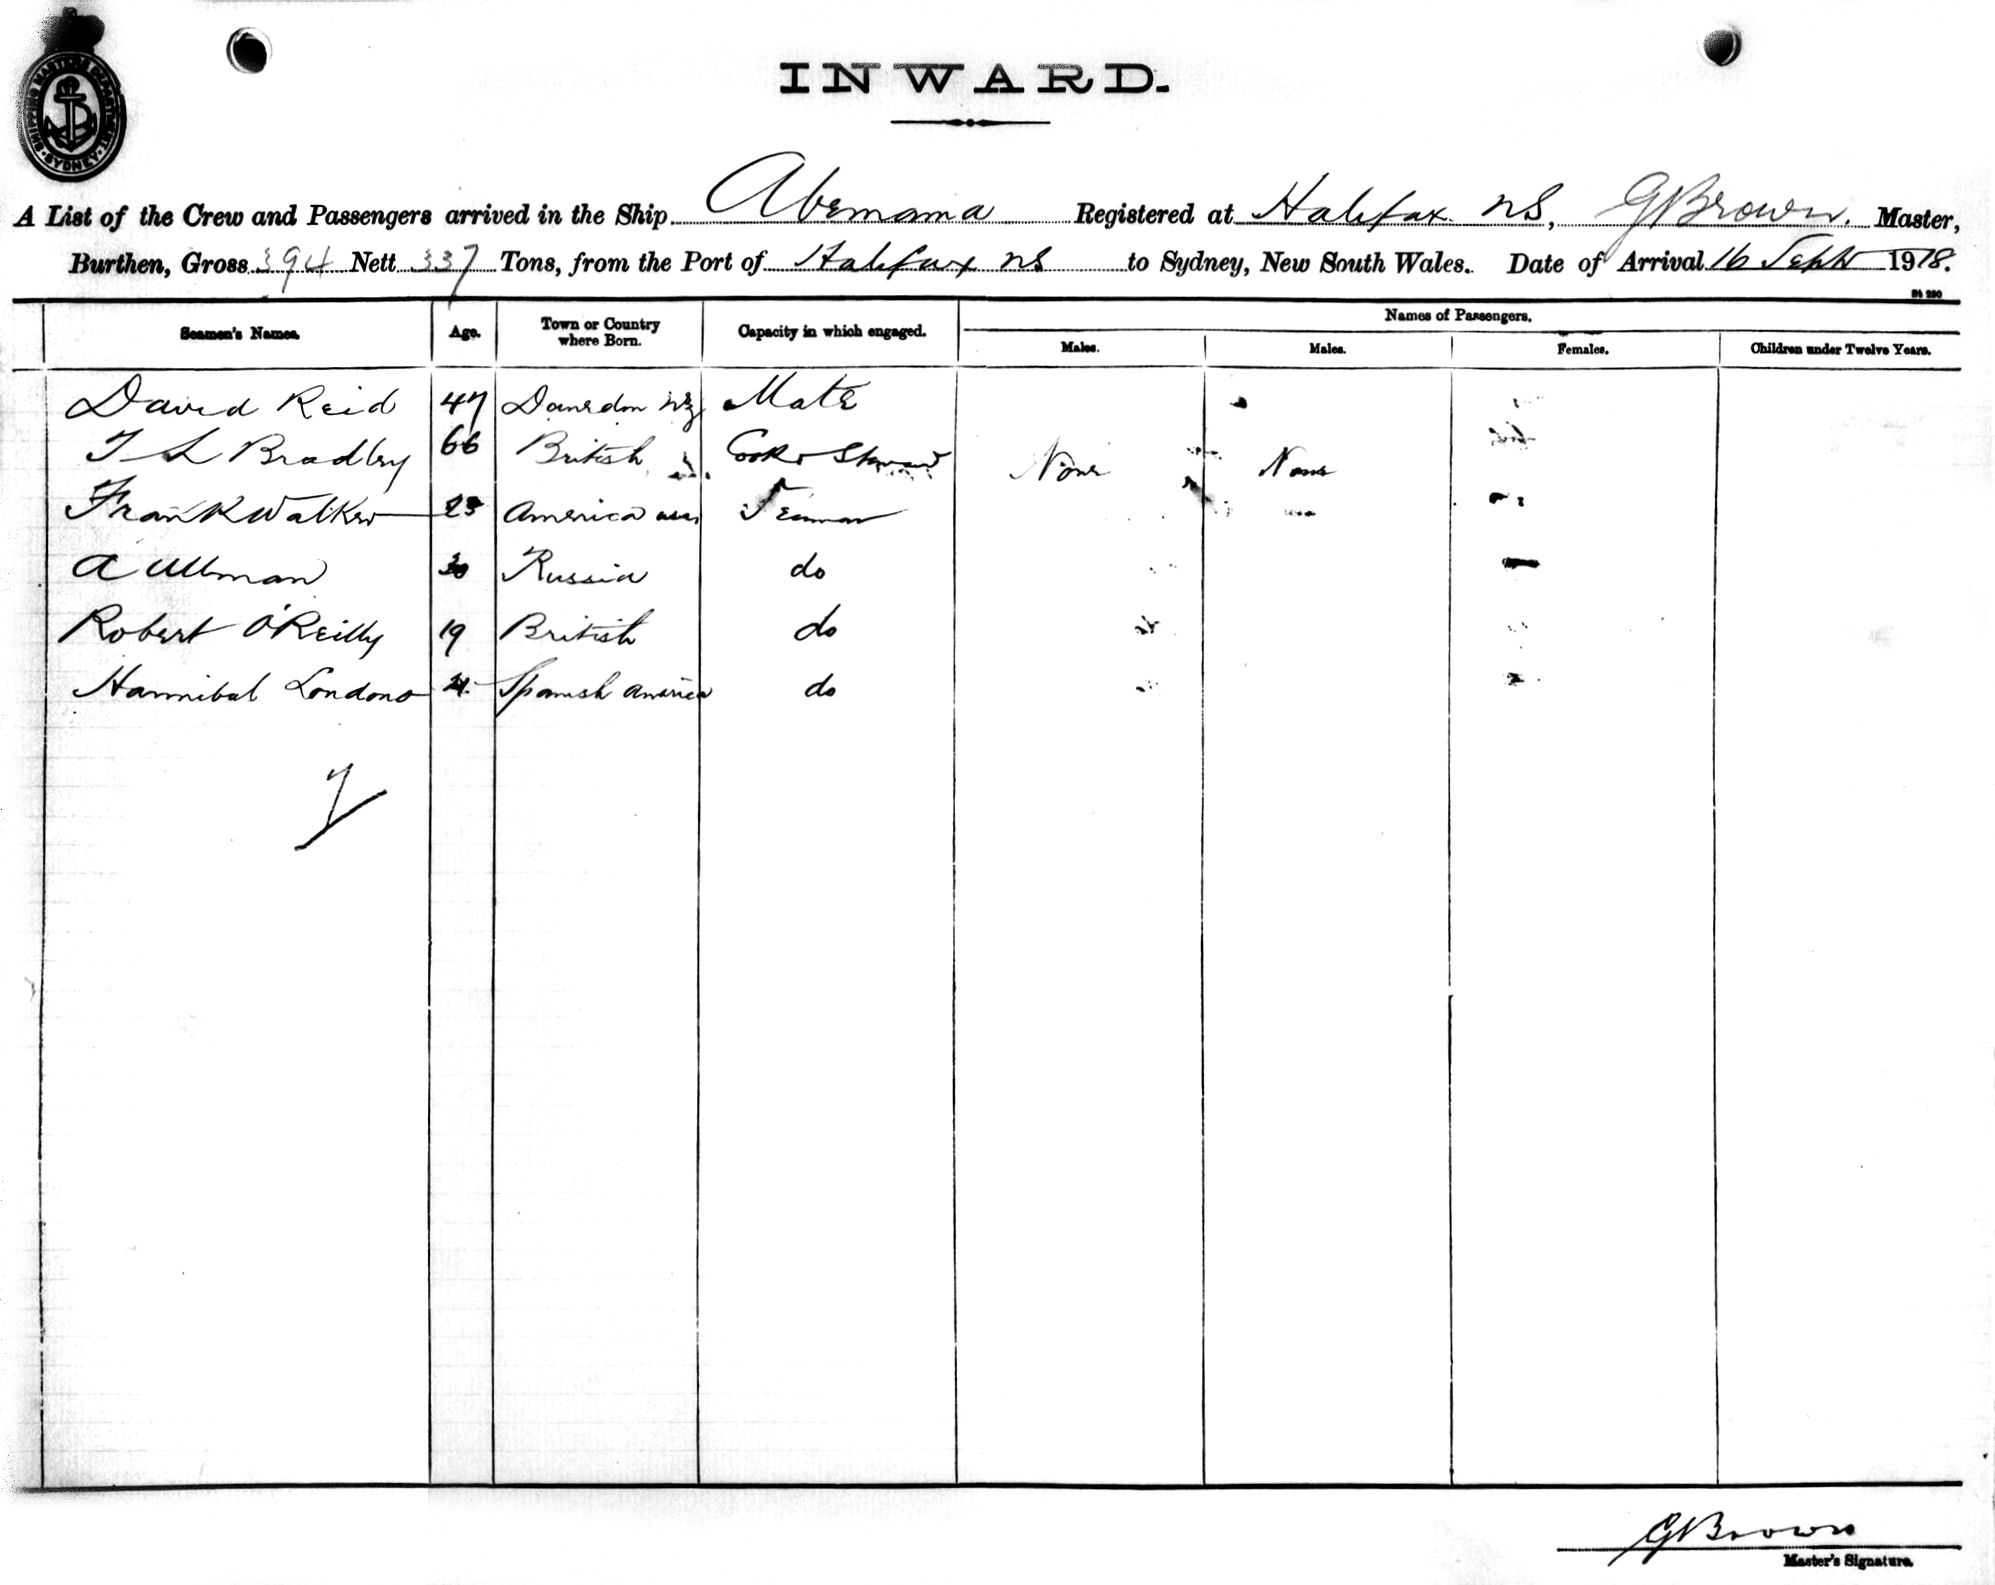 SHIPPING MASTER'S DEPARTMENT
SYDNEY
INWARD.
A List of the Crew and Passengers arrived in the Ship Abemama Registered at Halifax NS, G Brown. Master,
Burthen, Gross 394 Nett 337 Tons, from the Port of Halifax NS to Sydney, New South Wales. Date of Arrival 16 Sept 1918.
St 290
Seamen's Names. Age. Town or Country where Born. Capacity in which engaged. Names of Passengers.
Males. Males. Females. Children under Twelve Years.
David Reid 47 Dunedin NZ Mate
T L Bradley 66 British Cook & Steward None None
Frank Walker 23 America USA Seaman
A Ullman 30 Russia do
Robert O'Reilly 19 British do
Hannibal Londono 21 Spanish America do
7
G Brown
Master's Signature.